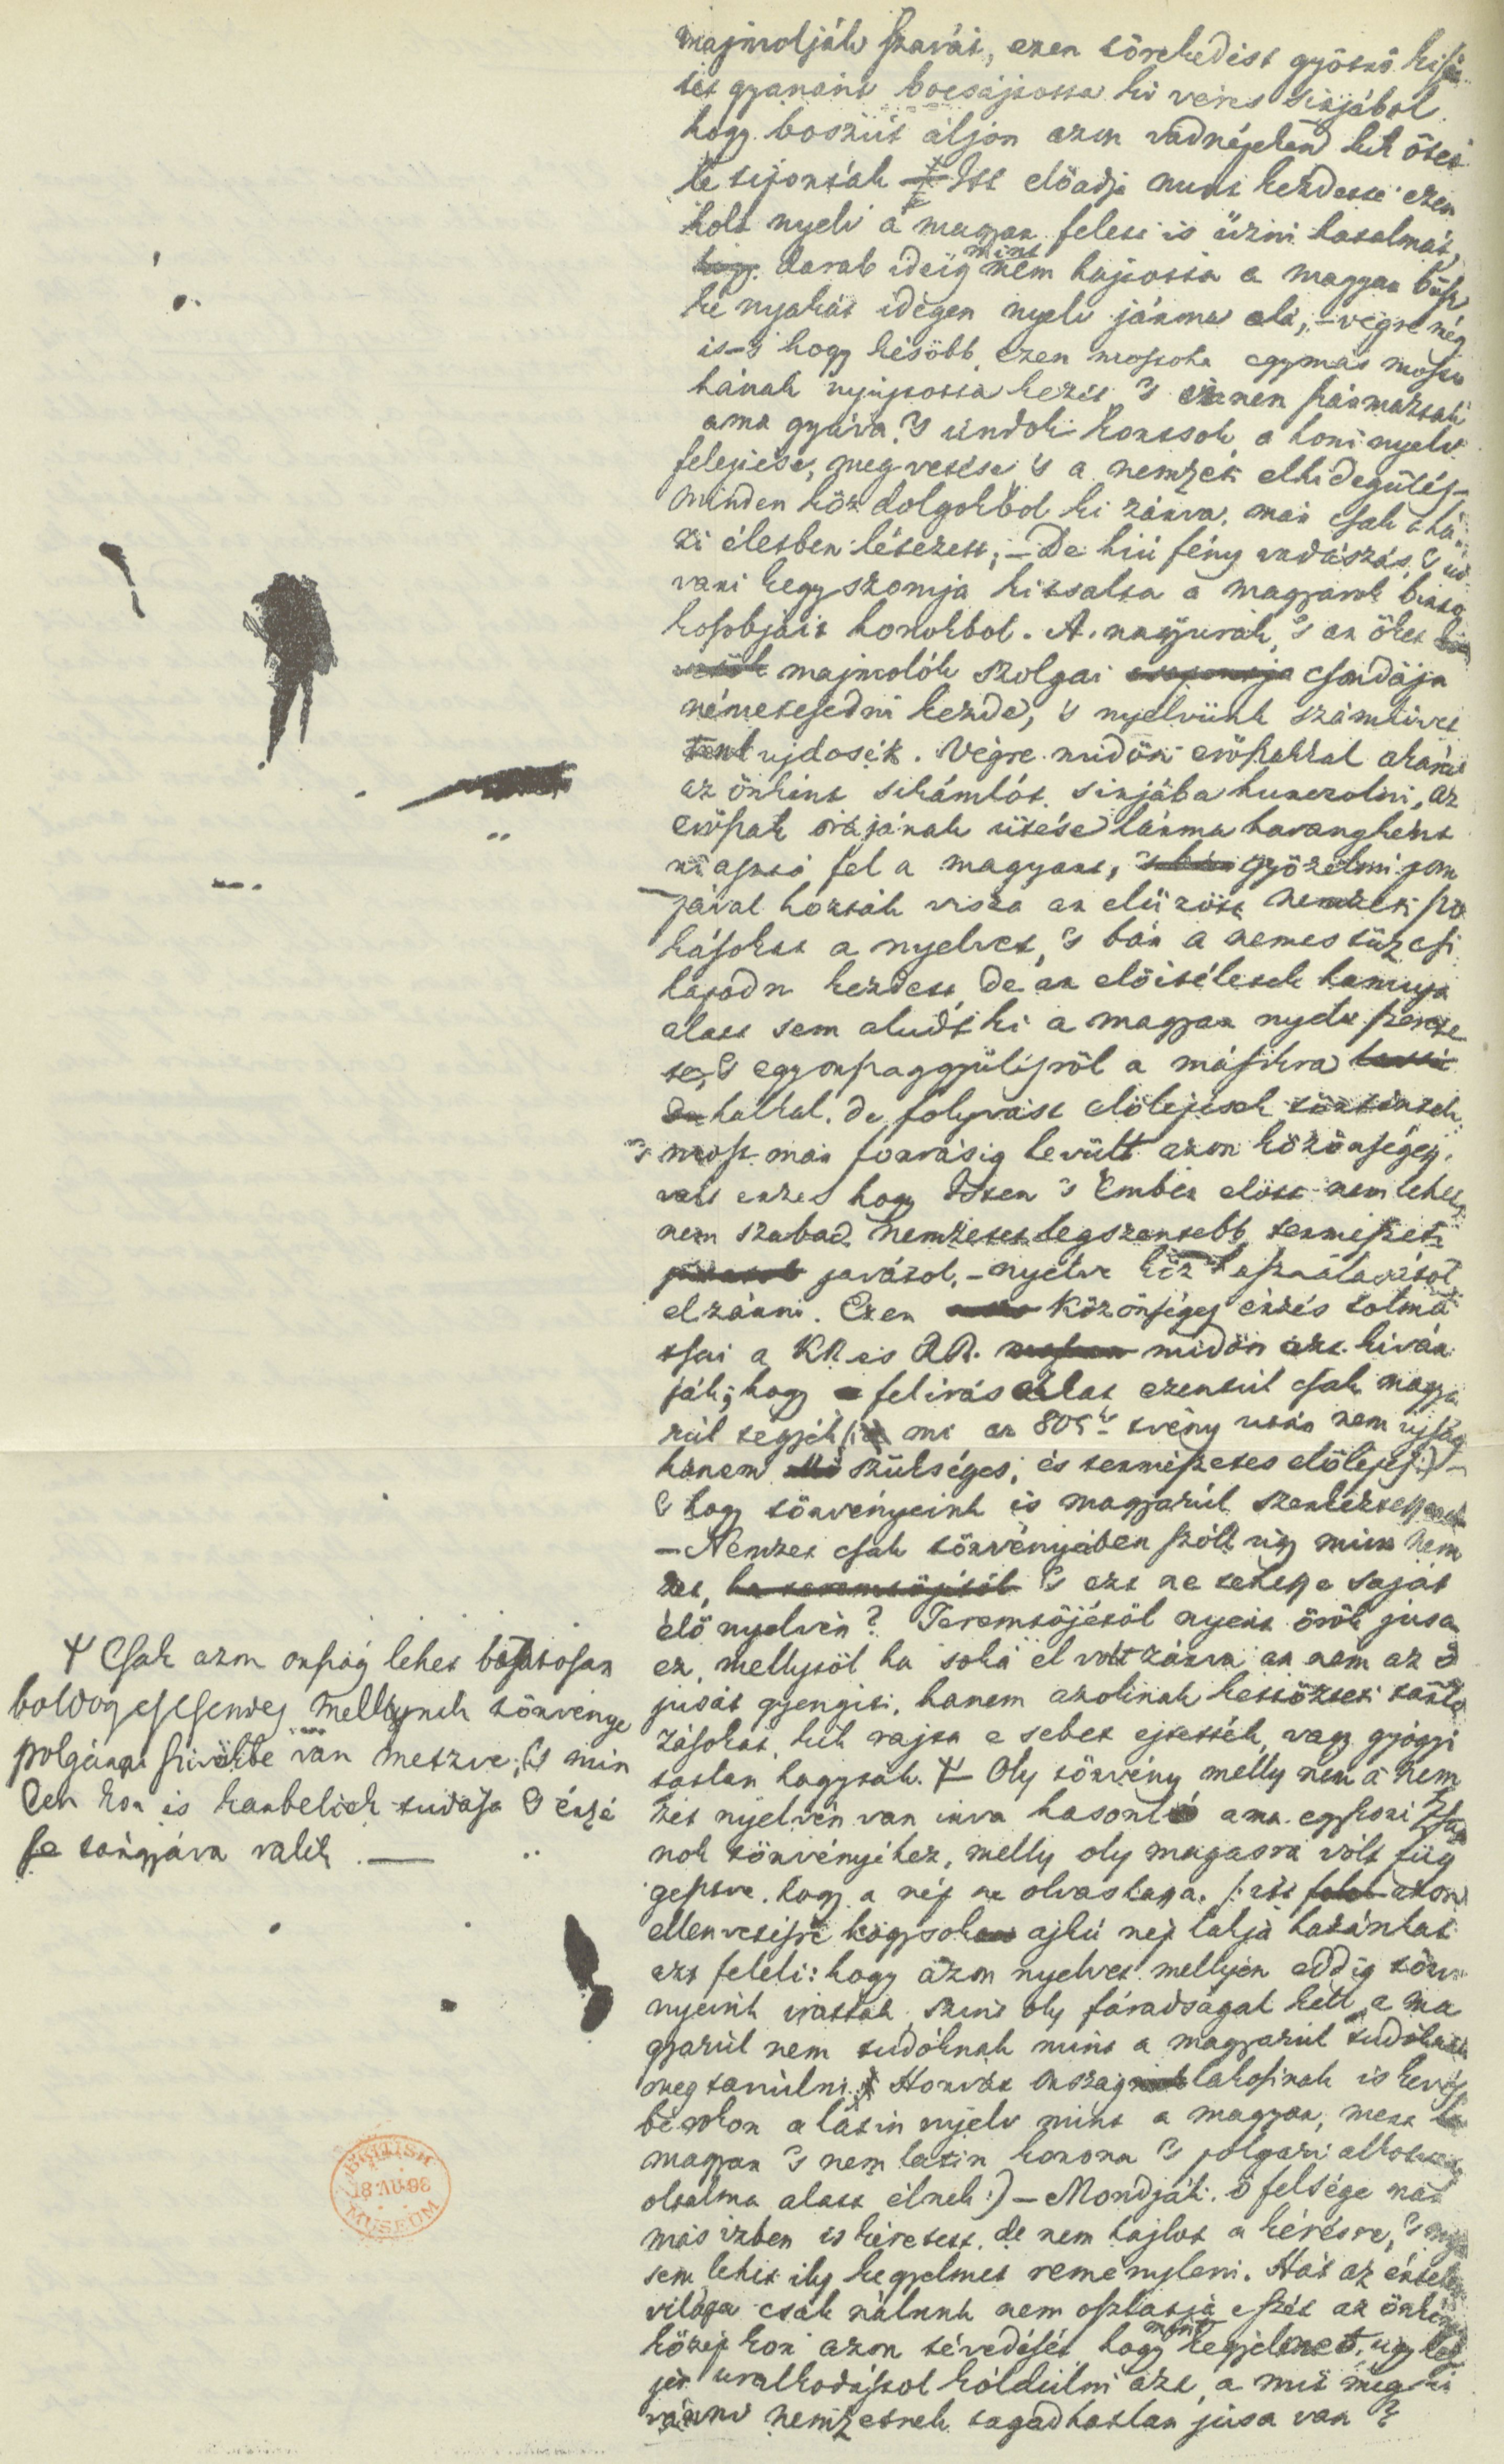 majmolják szavát, ezen törekedést gyötrő kisér
tet gyanánt bocsájtotta ki véres sirjábol
hogy boszút áljon azon vadnépeken kik őtet
le tiporták Itt előadja mint kezdette ezen
holt nyelv a magyar felett is űzni hatalmát,
darab ideig mint nem hajtotta a magyar büsz
ke nyakát idegen nyelv járma alá, – végre még
is – 's hogy később ezen mostoha egymás mosto
hának nyújtotta kezét 's ebben származtak
ama gyáva 's undok korcsok, a honi nyelv
felejtése, megvetése 's a nemzet elhidegülése
minden köz dolgokbol ki zárva, már csak a há
zi életben létezett, – De hiú fény vadászás, 's ud
vari kegy szomja kicsalta a magyarok birto
kosobjait honokbol. A nagyurak, 's az őket
majmolók szolgai csordája
németesedni kezde, 's nyelvünk számkivet
tent ujdosék. Végre midőn erőszakkal akará
az önkint sirjába huzczolni, az
erőszak órájának ütése lárma harangként
riasztó fel a magyart, győzelmi pom
pával hozták vissza az elűzött nemzeti szo
kásokat a nyelvet, 's bár a nemes tűz csi
lapodni kezdett, de az előitéletek hamuja
alatt sem aludt ki a magyar nyelv szerete
te, 's egy országgyülésről a másikra
halkal, de folyvást előlépések történtek
's most már forrásig hevült azon közönséges
vált érzet hogy Isten 's Ember előtt nem lehet
nem szabad nemzetet legszentebb természeti
javától, – nyelve köz használatától
elzárni. Ezen közönséges érzés tolmá
tsai a KK és RR. midőn azt kiván
ják; hogy felirásaikat ezentúl csak magya
rúl tegyék (: mi az 805<sup>ki</sup> tvény után nem ujság
hanem szükséges, és természetes előlépés :) –
's hogy törvényeink is magyarúl szerkeztessenek
– Nemzet csak törvényében szóll úgy mint nem
zet, 's ezt ne tehesse saját
élő nyelvén? Teremtőjétől nyert örök jusa
ez, mellytől ha soha el volt zárva az nem az ő
jusát gyengiti, hanem azokinak kettőzteti tarto
zásokat, kik rajta e sebet ejtették, vagy gyógyi
tatlan hagyták. Ⴕ Oly törvény melly nem a nem
zet nyelvén van irva hasonló ama egykori Zsar
nok törvényihez, melly oly magasra vólt füg
gesztve, hogy a nép ne olvashassa. (: itt azon
ellenvetésre hogy sok ajkú nép lakja hazánkat
azt feleli: hogy azon nyelvet mellyen eddig törvé
nyeink irattak, szint oly fáradságal kell a ma
gyarúl nem tudóknak mint a magyarúl tudóknak
megtanúlni. Horvát Ország lakosinak is kevés
bé rokon a látin nyelv mint a magyar, mert
magyar 's nem latin korona 's polgári alkotvány
oltalma alatt élnek :) – Mondják: ő felsége már
más izben is kéretett, de nem hajlot a kérésre, 's
sem lehet ily kegyelmet reményleni. Hát az értelem
világa csak nálunk nem oszlatja e szét az önkény
közép kori azon tévedését hogy mint kegyelmet, úgy kel
jen uralkodástol kóldúlni azt, a mit meg ki
vánni nemzetnek tagadhatlan jusa van?
Ⴕ Csak azon ország lehet biztosan
boldog 's csendes mellynek törvénye
polgárai szivökbe van metszve, 's min
den kor is karbeliek tudása 's érzé
se tárgyává válik. —
BRITISH
18 AU 98
MUSEUM